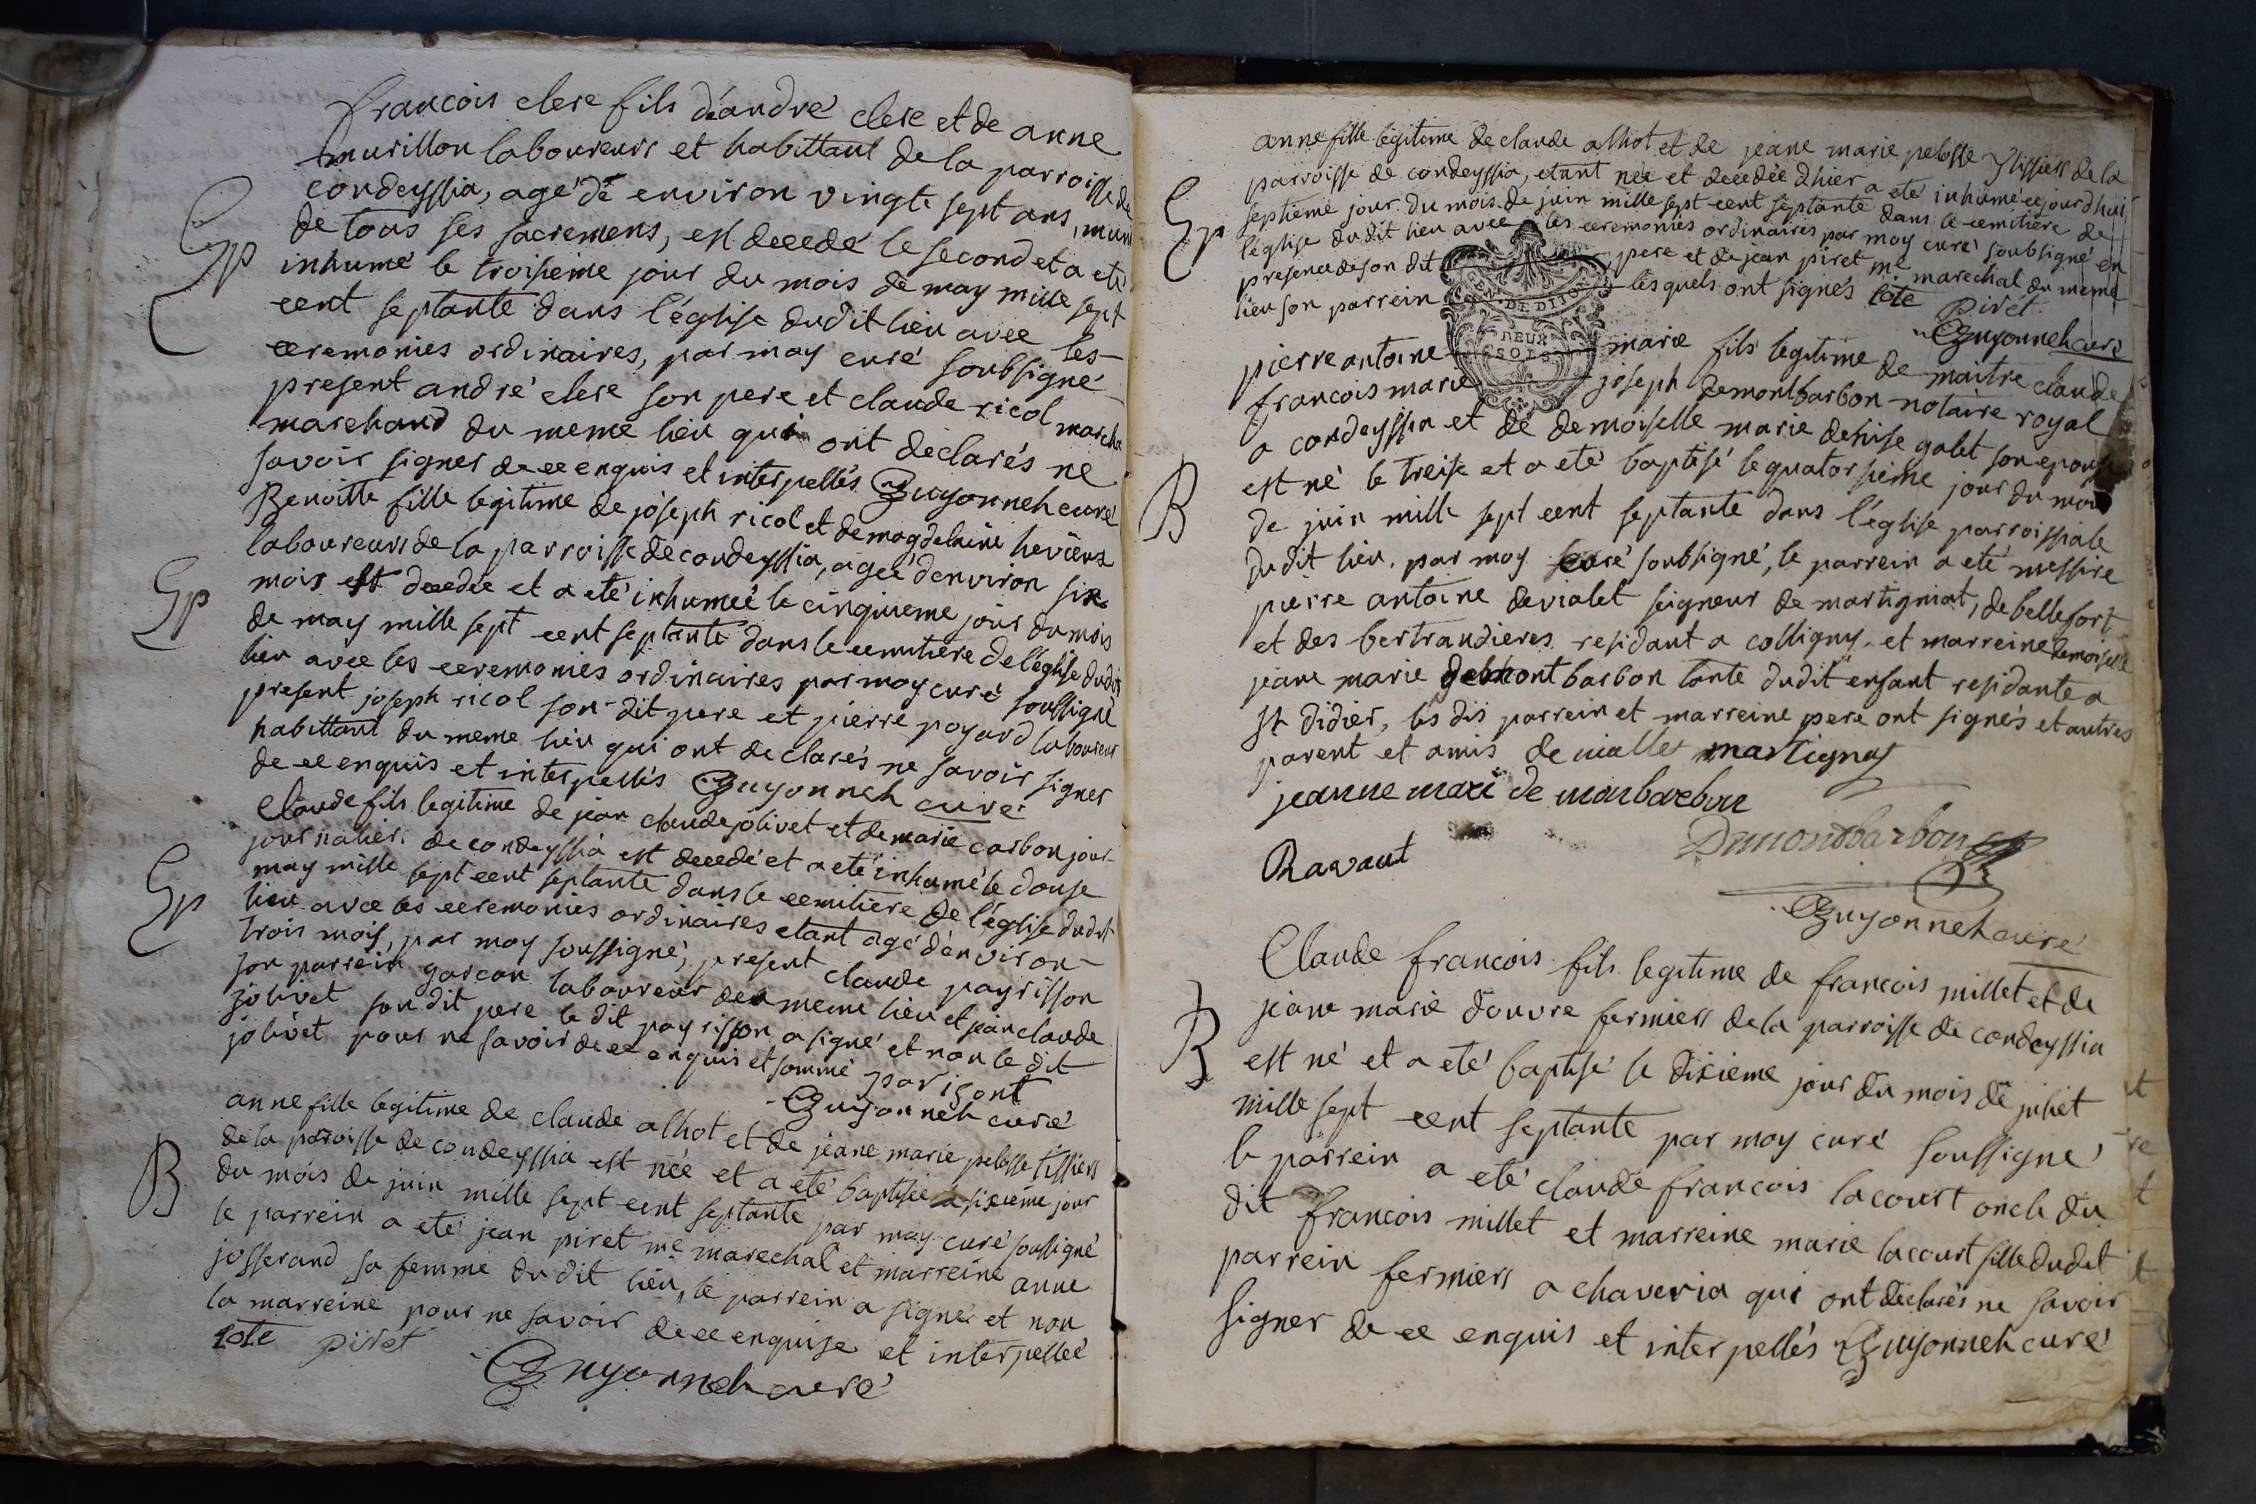 francois clerc fils d'andré clerc et de anne
murillon laboureurs et habittant de la parroisse de
condeyssia, agé de environ vingt sept ans, muni
de tous ses sacremens, est decedé le second et a eté
inhumé le troisieme jour du mois de may mille sept
cent septante dans l'église dudit lieu avec les
ceremonies ordinaires, par moy curé soubsigné
present andré clerc son pere et claude ricol marcha
marchand du meme lieu qui ont declarés ne
savoir signer de ce enquis et interpellés Guyonneh curé
Sp
Benoitte fille legitime de joseph ricol et de magdelaine
laboureurs de la parroisse de condeyssia, agée d'environ six
mois est decedée et a eté inhumée le cinquieme jour du mois
de may mille sept cent septante dans le cemitiere de l'église dudit
lieu avec les ceremonies ordinaires par moy curé soussigné
present joseph ricol son dit pere et pierre poyard laboureur
habittant du meme lieu qui ont declarés ne savoir signer
de ce enquis et interpellés Guyonneh curé
Sp
Claude fils legitime de jean claude jolivet et de marie carbon jour
journalier de condeyssia est decedé et a eté inhumé le douse
may mille sept cent septante dans le cemitiere de l'église dudit
lieu avec les ceremonies ordinaires etant agé d'environ
trois mois, par moy soussigné, present claude payrisson
son parrein garcon laboureur de meme lieu et jean claude
jolivet son dit pere le dit payrisson a signé et non le dit
jolivet pour ne savoir de ce enquis et sommé parisont
Guyonneh curé
Sp
anne fille legitime de claude alhot et de jeane marie pelosse tissiers
de la paroisse de condeyssia est née et a eté baptisée le sixieme jour
du mois de juin mille sept cent septante par moy curé soussigné
le parrein a eté jean piret me marechal et marreine anne
josserand sa femme du dit lieu, le parrein a signé et non
la marreine pour ne savoir de ce enquise et interpellée
cote piret
Guyonneh curé
B
anne fille legitime de claude alhot et de jeane marie pelosse tissiers de la
parroisse de condeyssia, etant née et decedée d'hier a eté inhumée ce jourdhui
septieme jour du mois de juin mille sept cent septante dans le cemitiere de
l'église du dit lieu avec les ceremonies ordinaires par moy curé soubsigné en
presence de son dit pere et de jean piret me marechal du meme
lieu son parrein les quels ont signés cote piret
Guyonneh curé
Sp
GEN. DE DIJON
DEUX
SOLS
pierre antoine marie fils legitime de maitre claude
francois marie joseph demontbarbon notaire royal
a condeyssia et de demoiselle marie denise galet son epouse
est né le treise et a eté baptisé le quatorsieme jour du mois
de juin mille sept cent septante dans l'église parroissiale
du dit lieu, par moy curé soubsigné, le parrein a eté messire
pierre antoine devialet seigneur de martigniat, de bellefort
et des bertrandieres residant a colligny, et marreine demoiselle
jeane marie demontbarbon tante dudit enfant residante a
st didier, les dis parrein et marreine pere ont signés et autres
parent et amis de viallet martignat
jeanne marie de montbarbon
Ravaut Demontbarbon
Guyonneh curé
B
Claude francois fils legitime de francois millet et de
jeane marie douvre fermiers de la parroisse de condeyssia
est né et a eté baptisé le dixieme jour du mois de juliet
mille sept cent septante par moy curé soussigné
le parrein a eté claude francois lacourt oncle du
dit francois millet et marreine marie lacourt fille du dit
parrein fermiers a chaveria qui ont declarés ne savoir
signer de ce enquis et interpellés Guyonneh curé
B